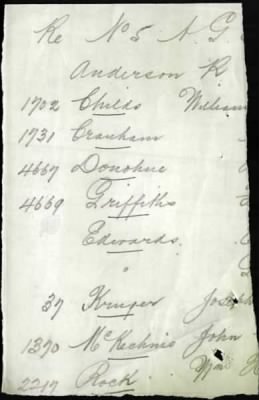 Re No 5 A. G.
Anderson R.
1702 Childs William
1731 Cranham
4667 Donohue
4669 Griffiths
Edwards.
"
37 Kruger Joseph
1370 McKechnis John
2217 Rock Wm H